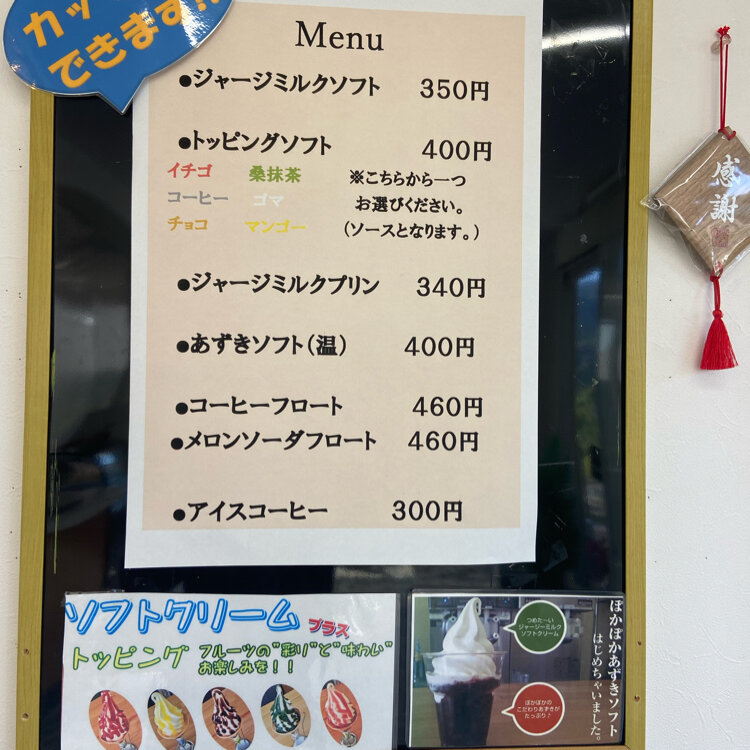 カッ
できます!!
Menu
●ジャージミルクソフト 350円
●トッピングソフト 400円
イチゴ 桑抹茶 ※こちらから一つ
コーヒー ゴマ お選びください。
チョコ マンゴー (ソースとなります。)
●ジャージミルクプリン 340円
●あずきソフト(温) 400円
●コーヒーフロート 460円
●メロンソーダフロート 460円
●アイスコーヒー 300円
感謝
ソフトクリーム プラス
トッピング フルーツの"彩り"と"味わい"
お楽しみを!!
ぽかぽかあずきソフト
はじめちゃいました。
つめた~い
ジャージーミルク
ソフトクリーム
ぽかぽかの
こだわりあずきが
たっぷり♪